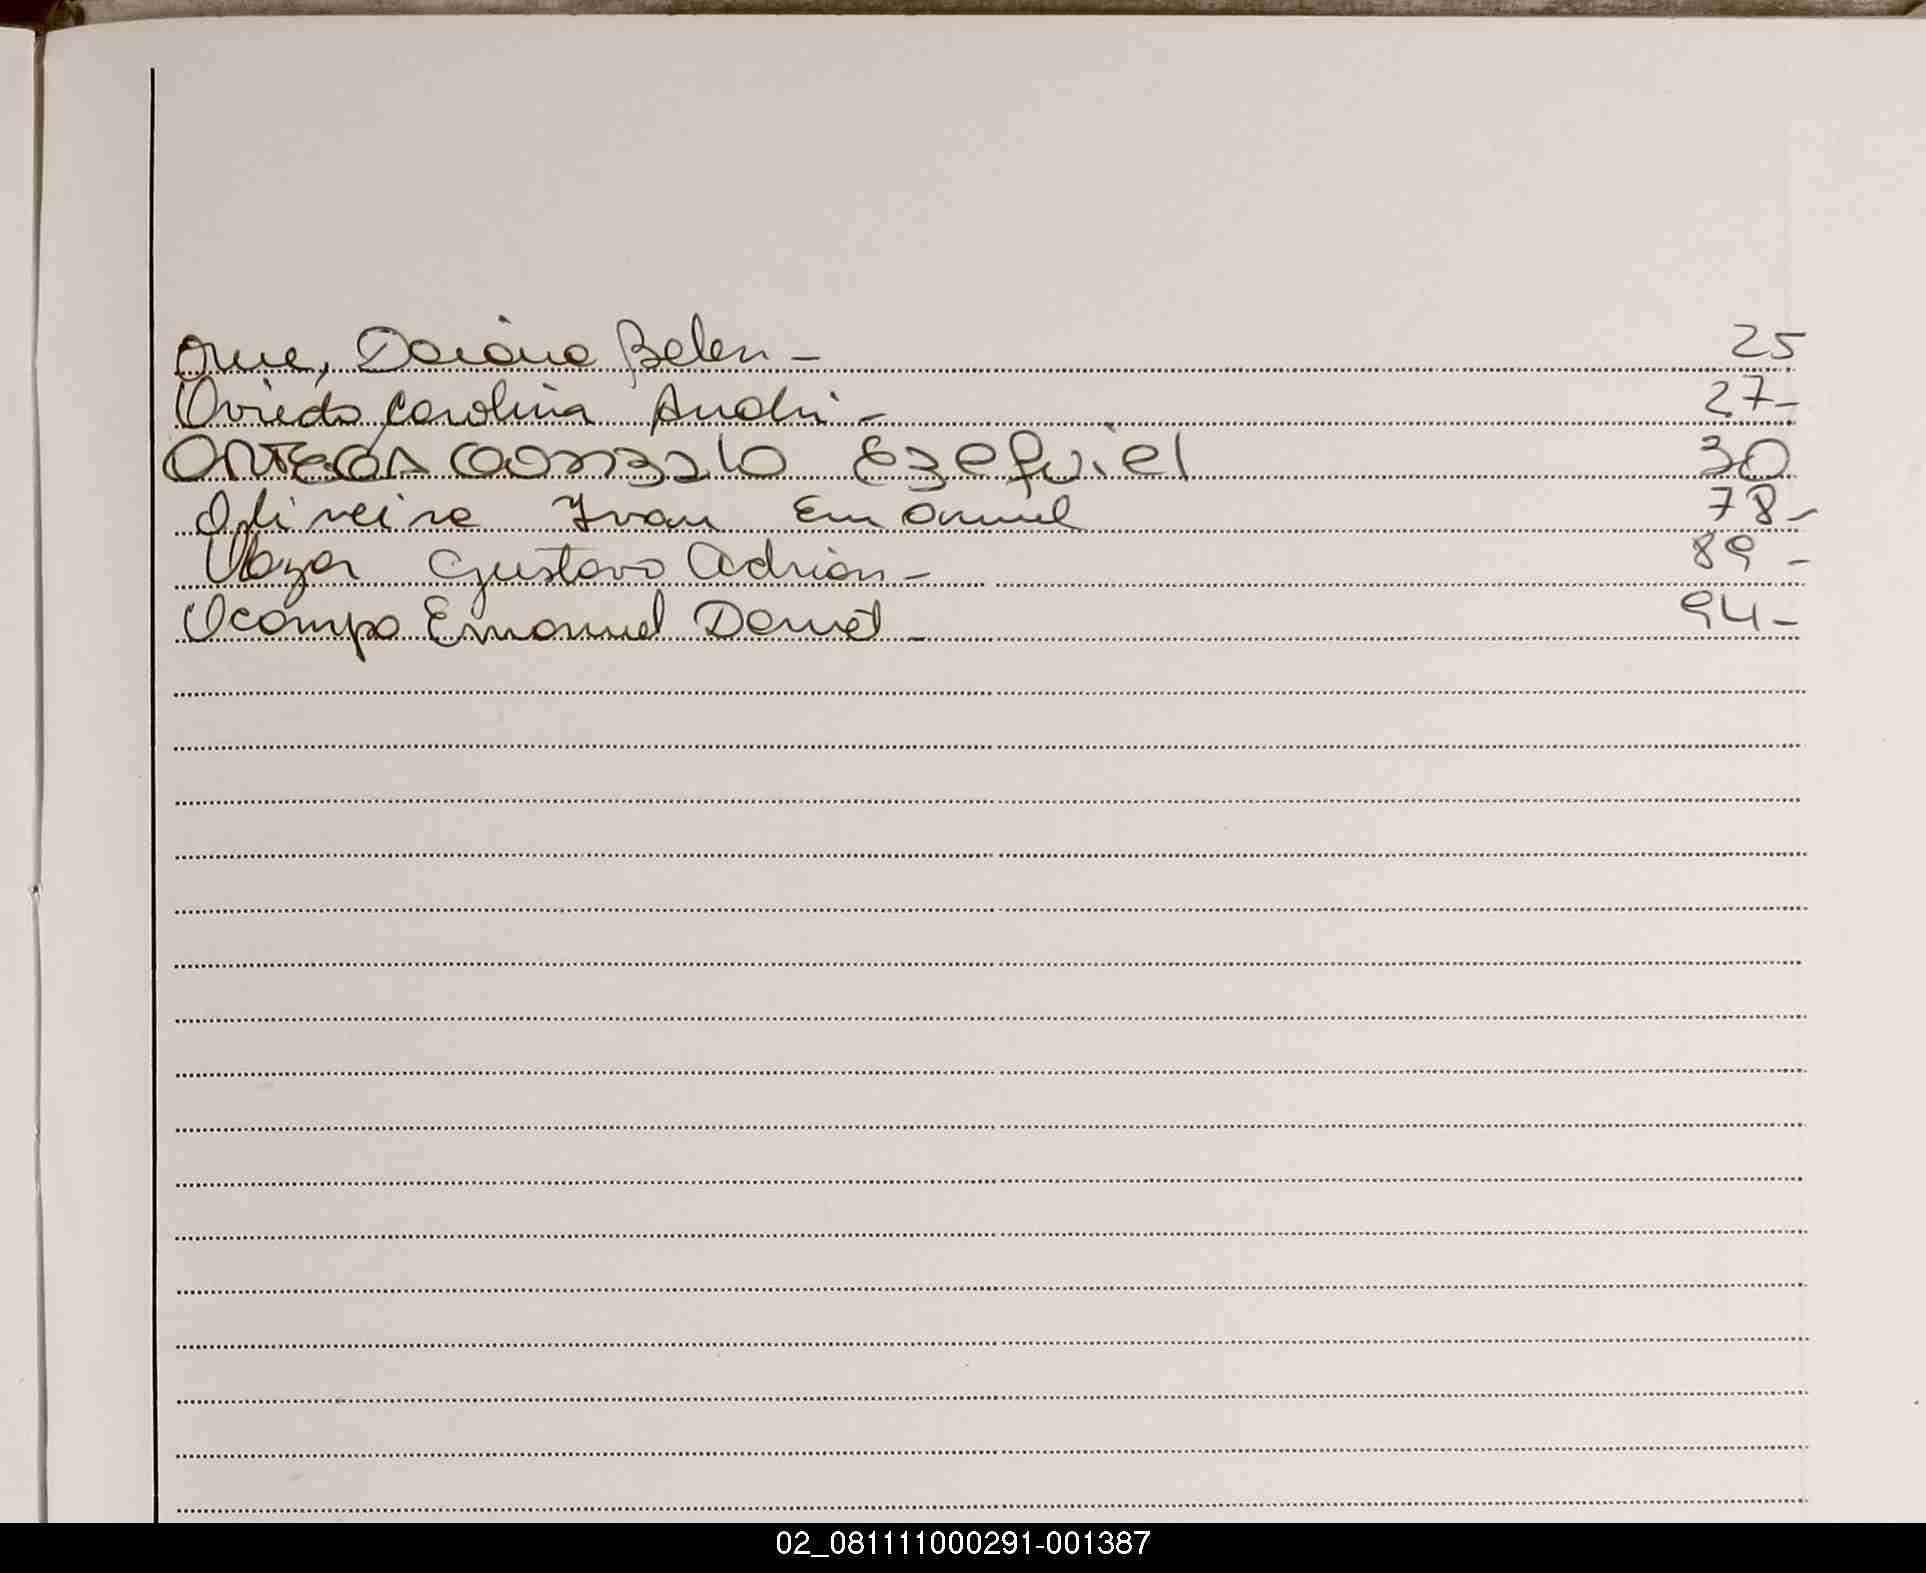 Orue, Daiana Belen - 25
Oviedo Carolina Andri - 27-
ORTEGA GONZALO EZEQUIEL 30
Oliveira Ivan Emanuel 78-
Gustavo Adrian - 89-
Ocampo Emanuel Daniel - 94-
02_081111000291-001387